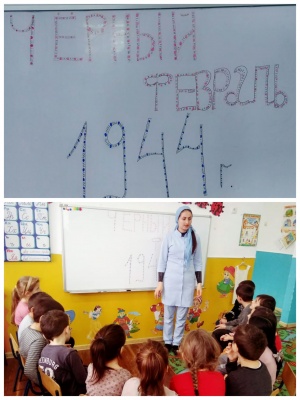 ЧЁРНЫЙ
ФЕВРАЛЬ
1944 г.
ЧЁРНЫЙ